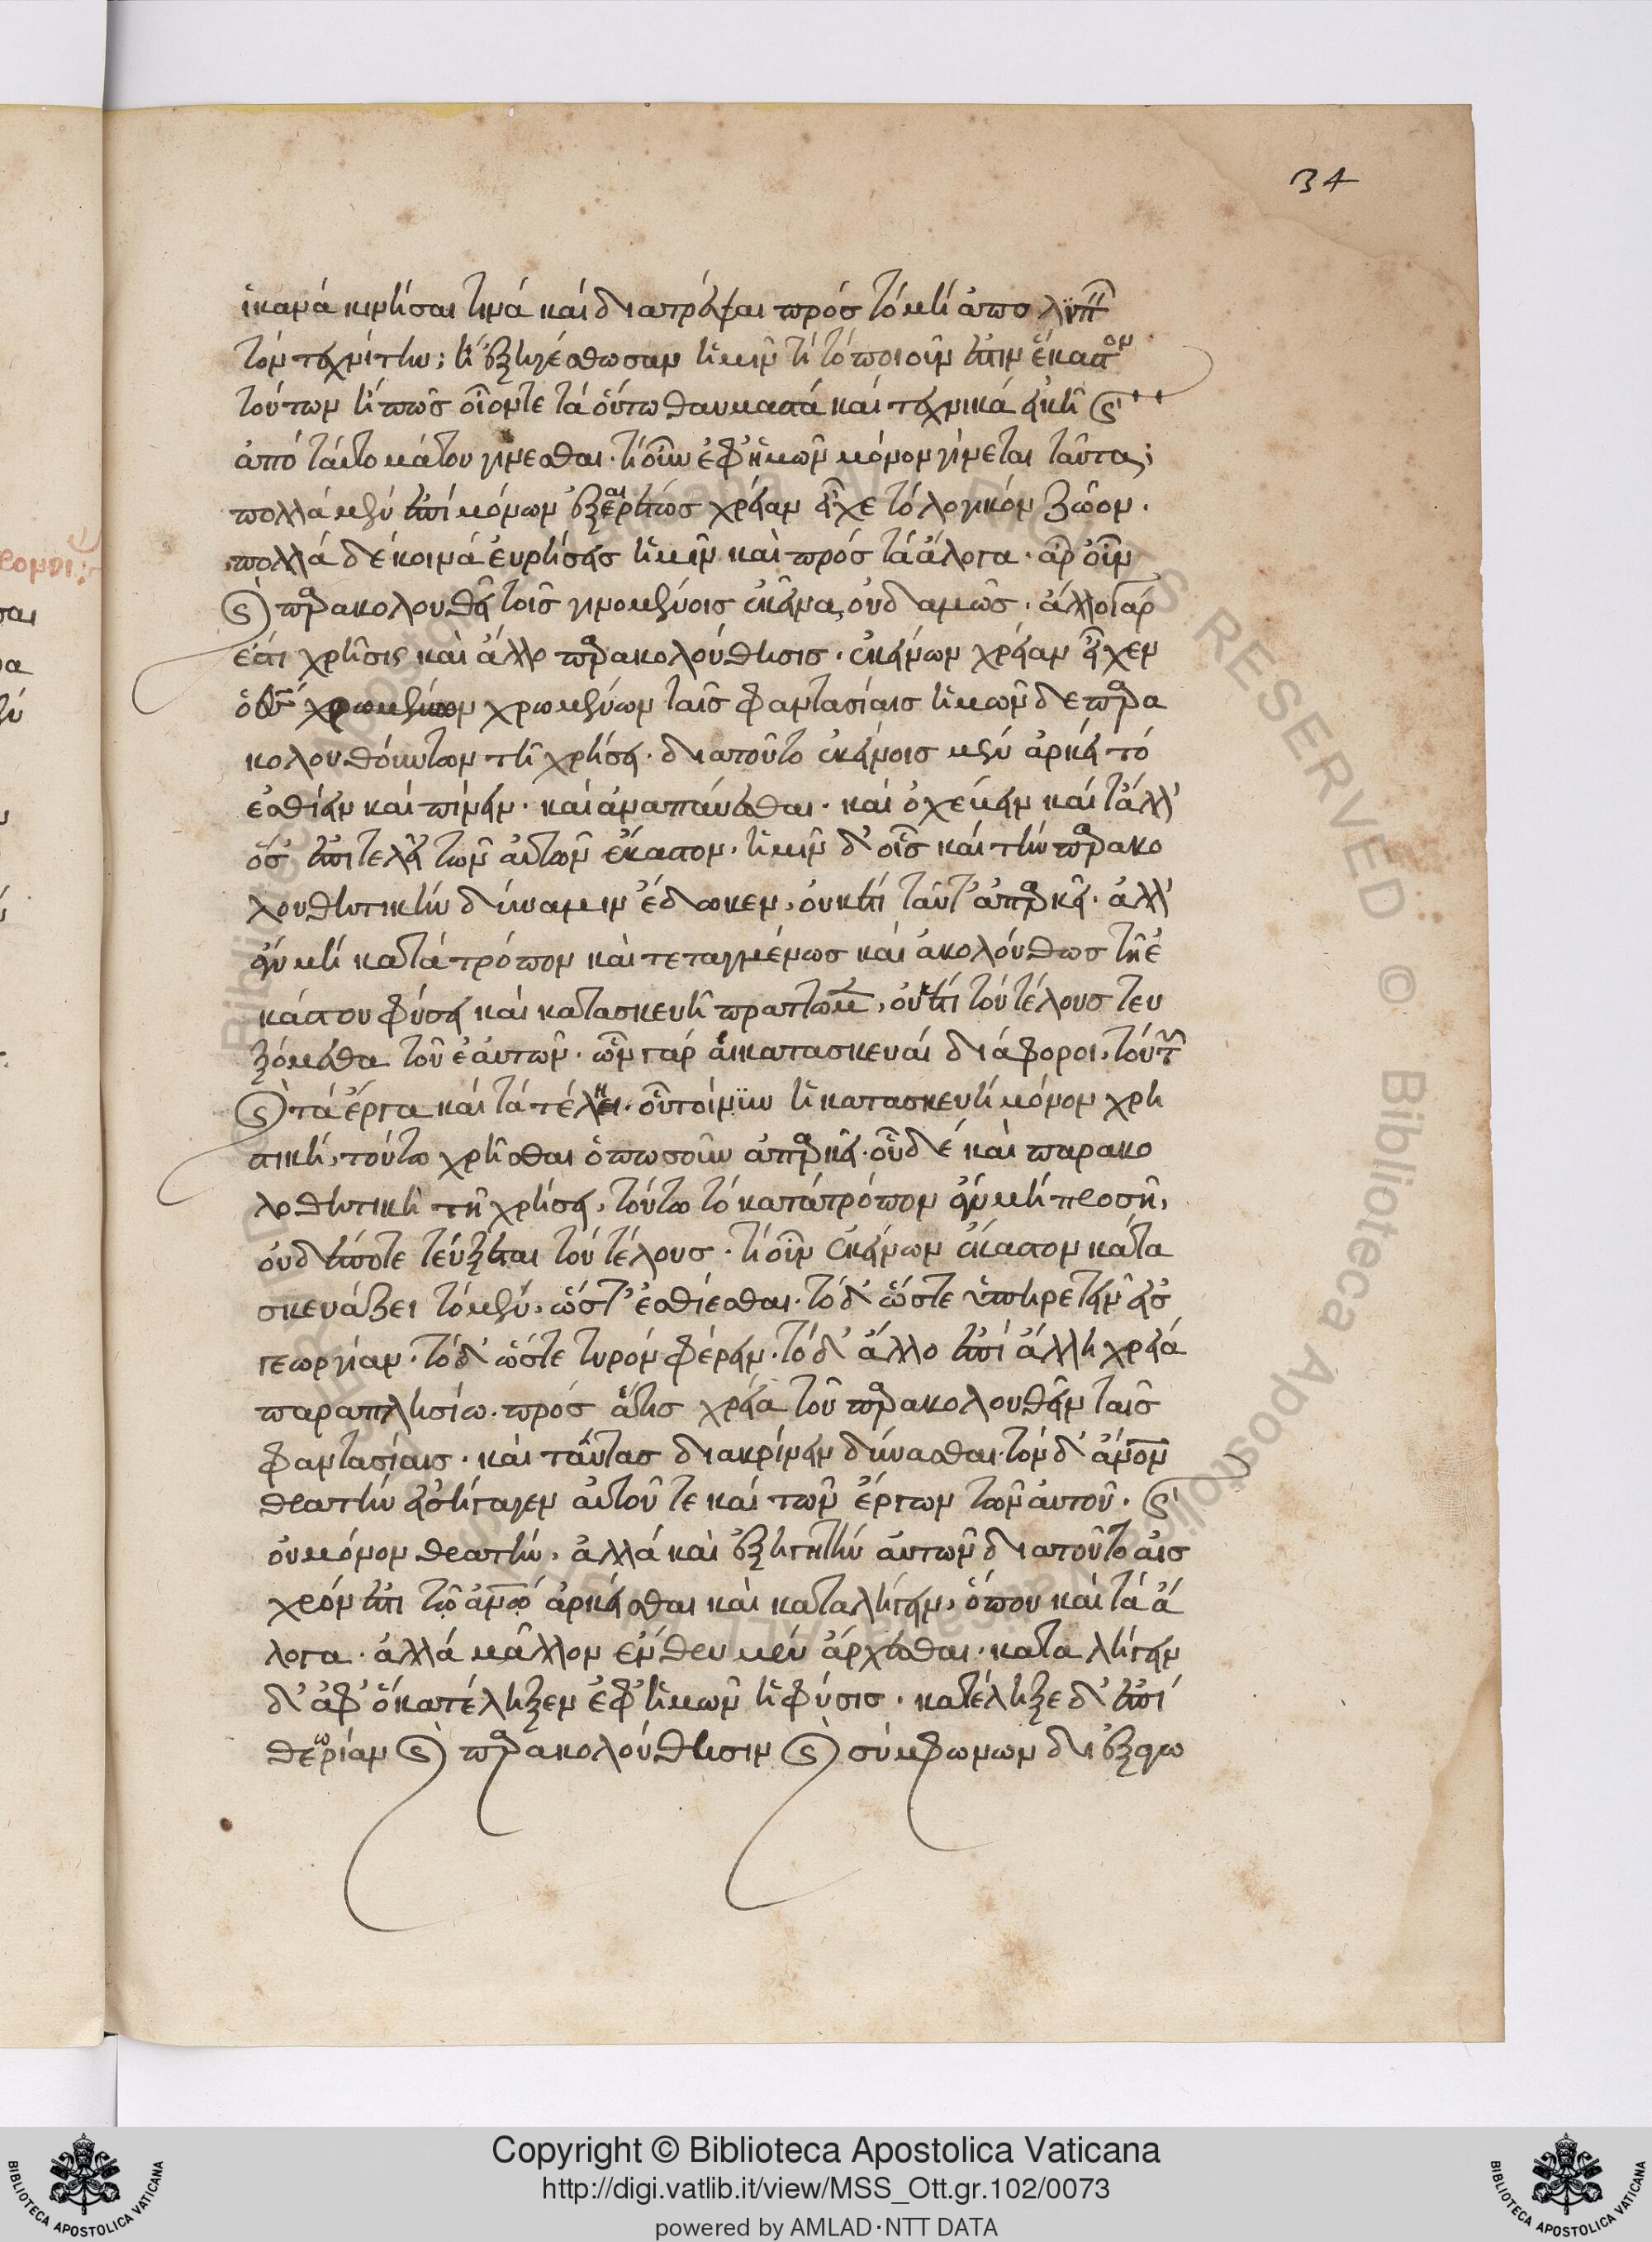 34
ἱκανά κινῆσαι τινά καί διατρέψαι πρός τό μή ἀπολιπεῖν
τόν τεχνίτην; ἤ ἐξηγείσθωσαν ἡμῖν τί τό ποιοῦν ἐστίν ἕκαστον
τούτων ἤ πῶς οἷόν τε τά οὕτω θαυμαστά καί τεχνικά εἰκῆ καὶ
ἀπό ταὐτομάτου γίνεσθαι. τί οὖν ἐφ' ἡμῶν μόνον γίνεται ταῦτα;
πολλά μέν ἐπί μόνων ἐξαιρέτως χρείαν εἶχε τό λογικόν ζῶον.
πολλά δέ κοινά εὑρήσεις ἡμῖν καὶ πρός τά ἄλογα. ἆρ' οὖν
καὶ παρακολουθεῖ τοῖς γινομένοις ἐκεῖνα, οὐδαμῶς. ἄλλο γάρ
ἐστι χρῆσις καὶ ἄλλο παρακολούθησις. ἐκείνων χρείαν εἶχεν
ὁ θεός χρωμένων χρωμένων ταῖς φαντασίαις ἡμῶν δε παρα
κολουθούντων τῆ χρήσει. διατοῦτο ἐκείνοις μέν ἀρκεῖ τό
ἐσθίειν καί πίνειν. καί ἀναπαύεσθαι. καί ὀχεύειν καί τἄλλ'
ὅσ' ἐπιτελεῖ τῶν αὐτῶν ἕκαστον. ἡμῖν δ' οἷς καί τήν παρακο
λουθητικήν δύναμιν ἔδωκεν, οὐκέτι ταῦτ' ἀπαρκεῖ. ἀλλ'
ἄν μή κατά τρόπον καὶ τεταγμένως καί ἀκολούθως τῆ ἑ
κάστου φύσει καὶ κατασκευῆ πράττωμεν, οὐκέτι τοῦ τέλους τευ
ξόμεθα τοῦ ἑαυτῶν. ὧν γάρ αἱ κατασκευαί διάφοροι, τούτων
καὶ τά ἔργα καί τά τέλη. οὗ τοίνυν ἡ κατασκευή μόνον χρη
στική, τούτω χρῆσθαι ὁπωσοῦν ἀπαρκεῖ. οὗ δέ καὶ παρακο
λουθητική τῆ χρήσει, τούτω τό κατά τρόπον ἄν μή προσῆ,
οὐδέποτε τεύξεται τοῦ τέλους. τί οὖν ἐκείνων ἕκαστον κατα
σκευάζει τό μέν, ὥστ' ἐσθίεσθαι. τό δ' ὥστε ὑπηρετεῖν εἰς
γεωργίαν. τό δ' ὥστε τυρόν φέρειν. τό δ' ἄλλο ἐπί ἄλλη χρεία
παραπλησίω. πρός ἅτις χρεία τοῦ παρακολουθεῖν ταῖς
φαντασίαις. καὶ ταύτας διακρίνειν δύνασθαι. τόν δ' ἄνον
θεατήν εἰσήγαγεν αὐτοῦ τε καί τῶν ἔργων τῶν αὐτοῦ. καὶ
οὐ μόνον θεατήν, ἀλλά καὶ ἐξηγητήν αὐτῶν διατοῦτο αἰσ
χρόν ἐστι τῶ ἀνῷ ἄρχεσθαι καὶ καταλήγειν, ὅπου καὶ τά ἄ
λογα. ἀλλά μᾶλλον ἔνθεν μέν ἄρχεσθαι. καταλήγειν
δ' ἀφ' ὅ κατέληξεν ἐφ' ἡμῶν ἡ φύσις. κατέληξε δ' ἐπί
θεωρίαν καὶ παρακολούθησιν καὶ σύμφωνων διεξαγω
Copyright © Biblioteca Apostolica Vaticana
http://digi.vatlib.it/view/MSS_Ott.gr.102/0073
powered by AMLAD·NTT DATA